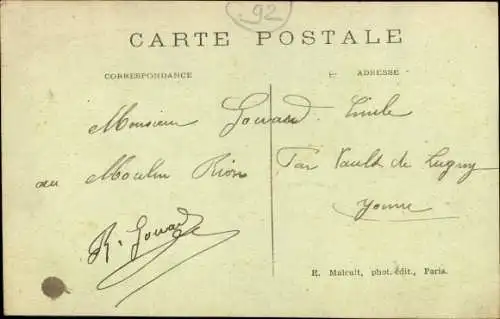 92
CARTE POSTALE
CORRESPONDANCE
ADRESSE
Monsieur Gouard Emile
au Moulin Rion Par Vault de Lugny
Yonne
R. Gouard
R. Malcuit, phot. édit., Paris.